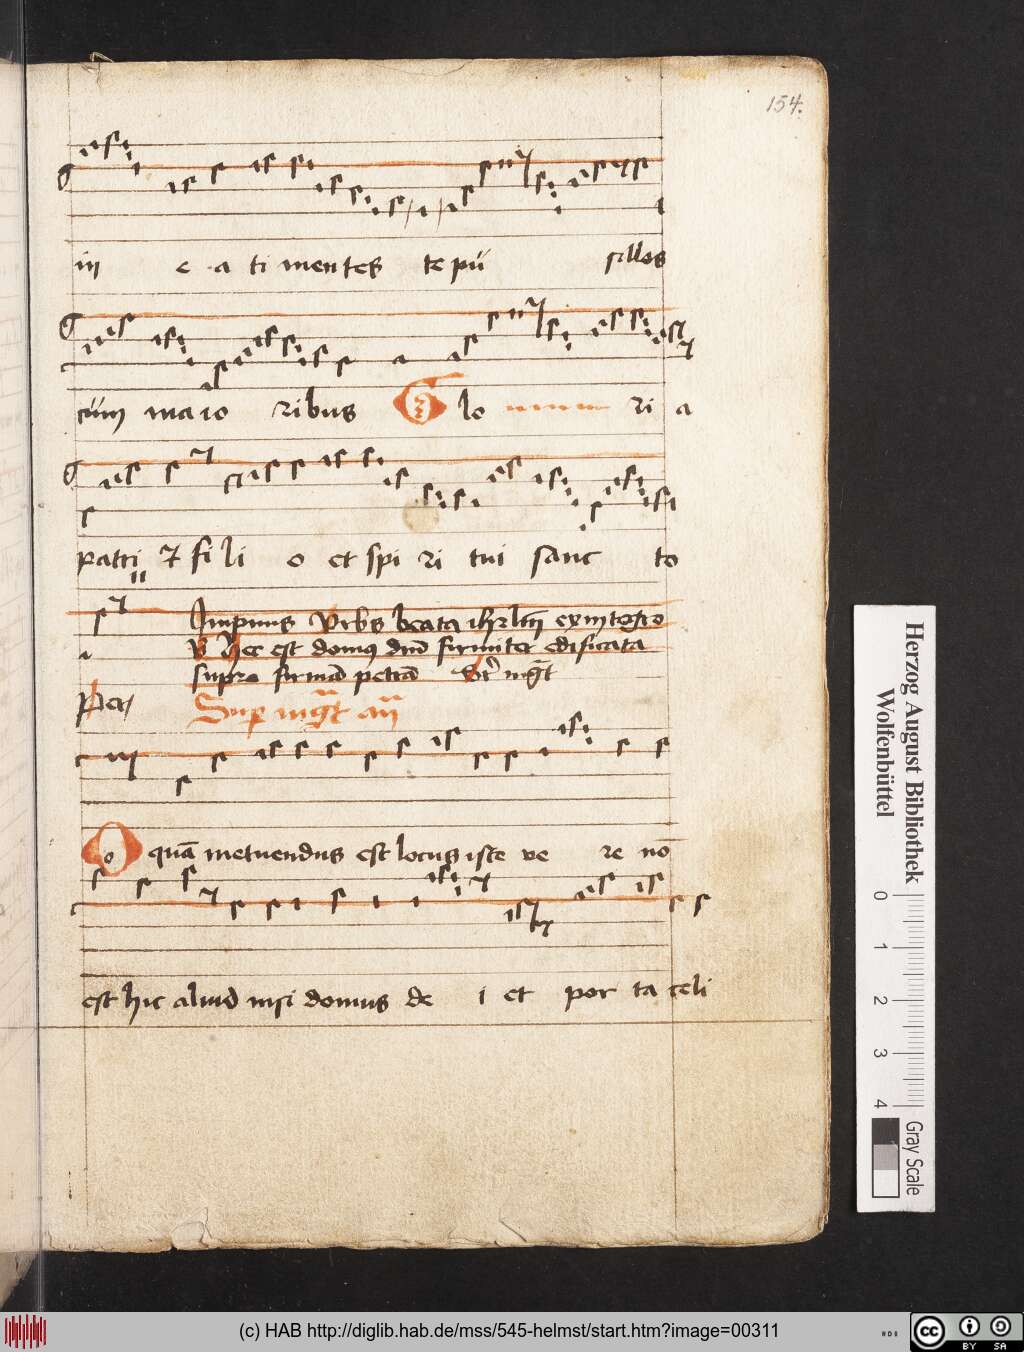 154.
in e a ti mentes te pu sillos
cum maio ribus Glo ri a
patri ⁊ fi li o et spi ri tui sanc to
Impnus Urbs beata ihrlm ex integro
V Hec est domus dñi firmiter edificata
supra firmā petrā
Per Sup mgt añ
O quā metuendus est locus iste ve re nō
est hic aliud nisi domus de i et por ta celi
Herzog August Bibliothek
Wolfenbüttel
0 1 2 3 4
Gray Scale
(c) HAB http://diglib.hab.de/mss/545-helmst/start.htm?image=00311
cc BY SA